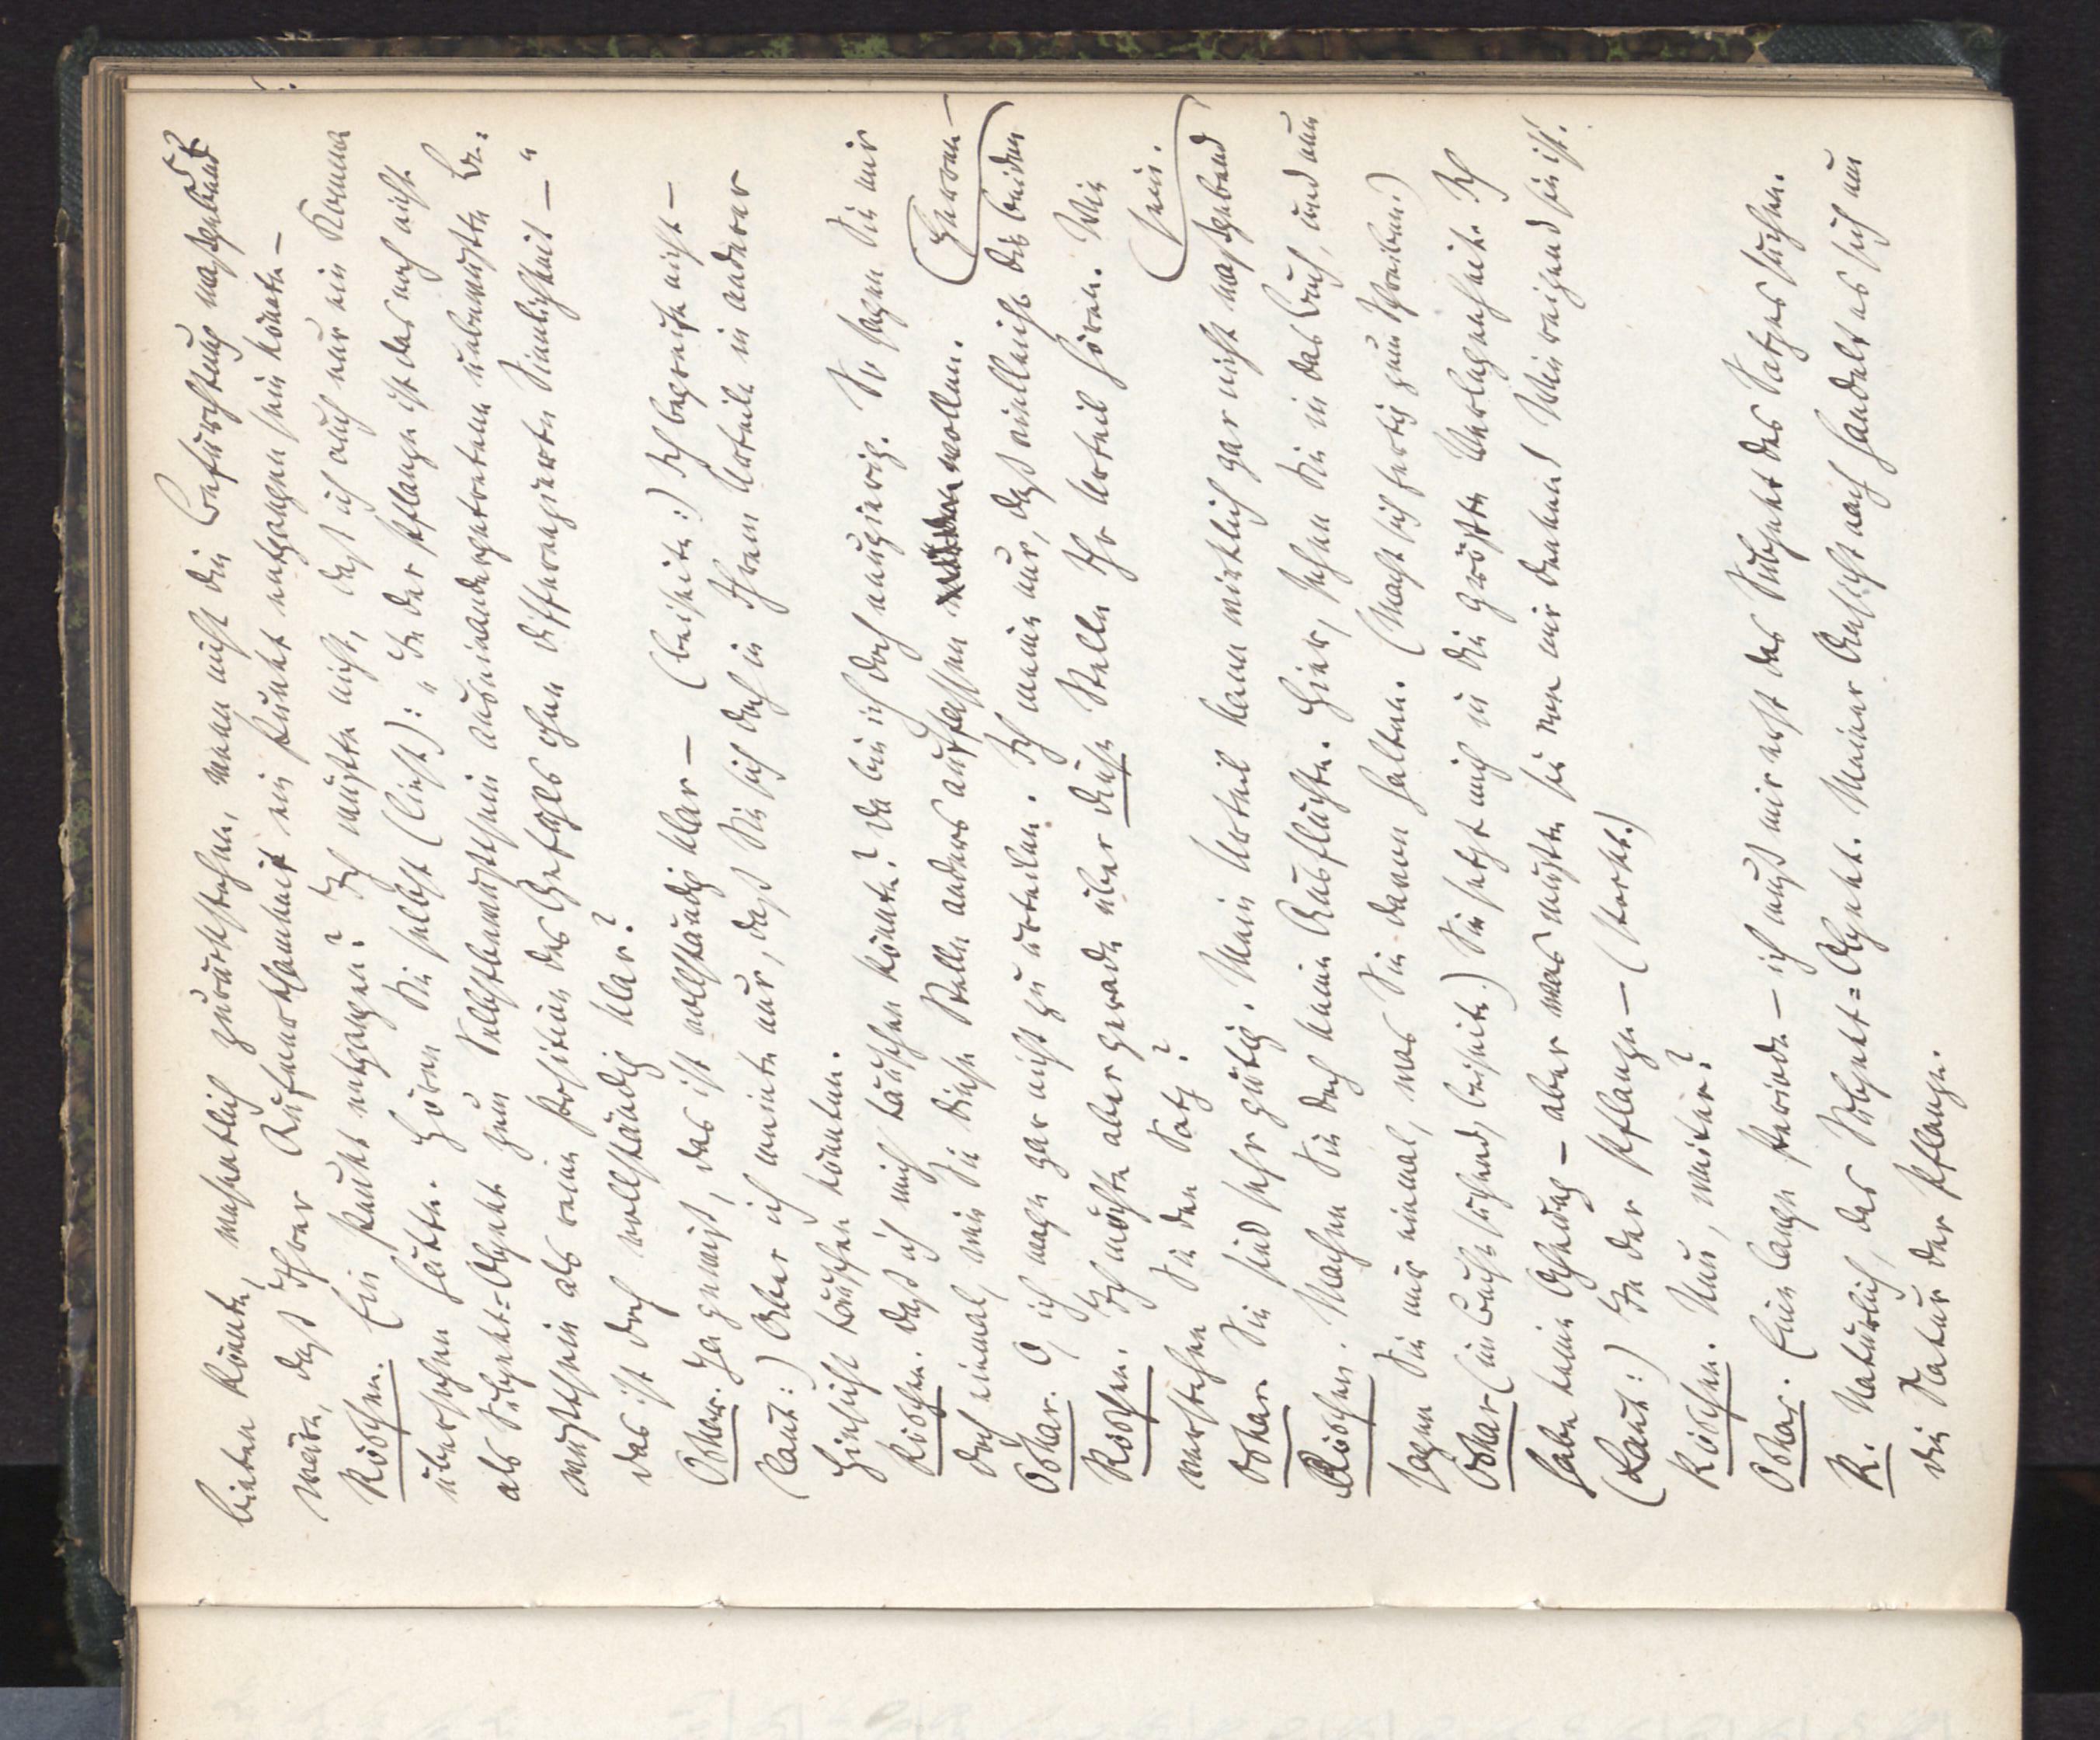 bieten könnte, unsäglich zurückstehen, wenn nicht die Befürchtung maßgebend
wäre, daß Ihrer Aufmerksamkeit ein Punkt entgangen sein könnte –
Röschen. Ein Punkt entgangen? Ich wüßte nicht, daß ich auch nur ein Komma
übersehen hätte. Hören Sie selbst (liest): „In der Pflanze ist das noch nicht
als Subjekt-Objekt zum Selbstbewußtsein auseinandergetretene unbewußte Be-
wußtsein als reine Position des Gefühls ohne differenzierte Sinnlichkeit –“
das ist doch vollständig klar?
Oskar. Ja gewiß, das ist vollständig klar – (beiseite:) Ich begreife nichts –
(laut:) Aber ich meinte nur, daß Sie sich doch in Ihrem Urteile in anderer
Hinsicht täuschen könnten.
Röschen. Daß ich mich täuschen könnte? Da bin ich doch neugierig. So sagen Sie mir
doch einmal, wie Sie diese Stelle anders auffassen wollen.
Oskar. O, ich wage gar nicht zu urteilen. Ich meine nur, daß vielleicht die beiden
Röschen. Ich möchte aber gerade über diese Stelle Ihr Urteil hören. Wie
verstehen Sie den Satz?
Oskar. Sie sind sehr gütig. Mein Urteil kann wirklich gar nicht maßgebend
sein.
Röschen. Machen Sie doch keine Ausflüchte. Hier, sehen Sie in das Buch, und nun
sagen Sie mir einmal, was Sie davon halten. (Macht sich fertig zum Schreiben.)
Oskar (im Buch suchend, beiseite.) Sie setzt mich in die größte Verlegenheit. Ich
habe keine Ahnung – aber was müßte sie von mir denken! Wie reizend sie ist.
(Laut:) In der Pflanze – (stockt.)
Röschen. Nun, weiter?
Oskar. Eine lange Periode – ich muß mir erst das Subjekt des Satzes suchen.
R. Natürlich, das Subjekt-Objekt. Meiner Ansicht nach handelt es sich um
die Natur der Pflanze.